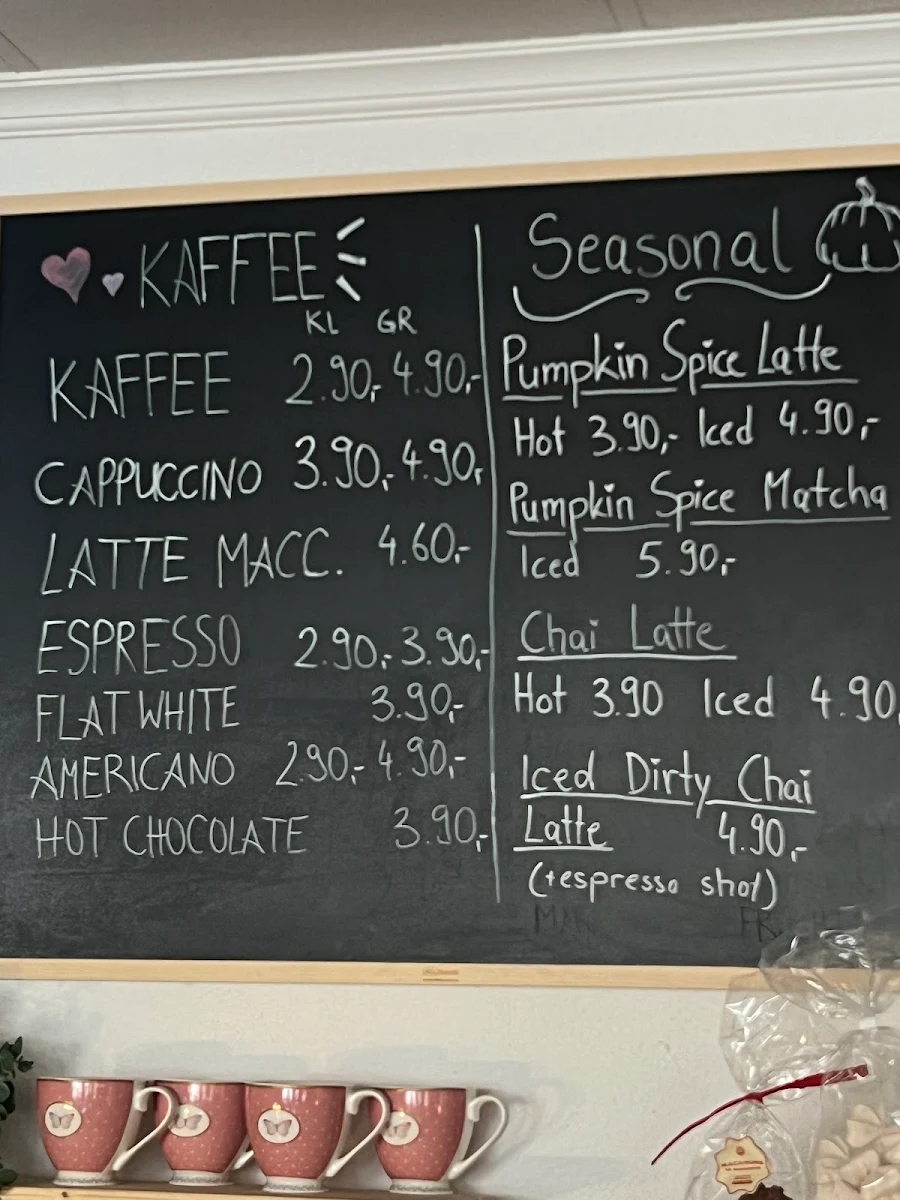 KAFFEE
KL GR
KAFFEE 2.90,- 4.90,-
CAPPUCCINO 3.90,- 4.90,-
LATTE MACC. 4.60,-
ESPRESSO 2.90,- 3.90,-
FLAT WHITE 3.90,-
AMERICANO 2.90,- 4.90,-
HOT CHOCOLATE 3.90,-
Seasonal
Pumpkin Spice Latte
Hot 3.90,- Iced 4.90,-
Pumpkin Spice Matcha
Iced 5.90,-
Chai Latte
Hot 3.90 Iced 4.90,
Iced Dirty Chai
Latte 4.90,-
(+espresso shot)